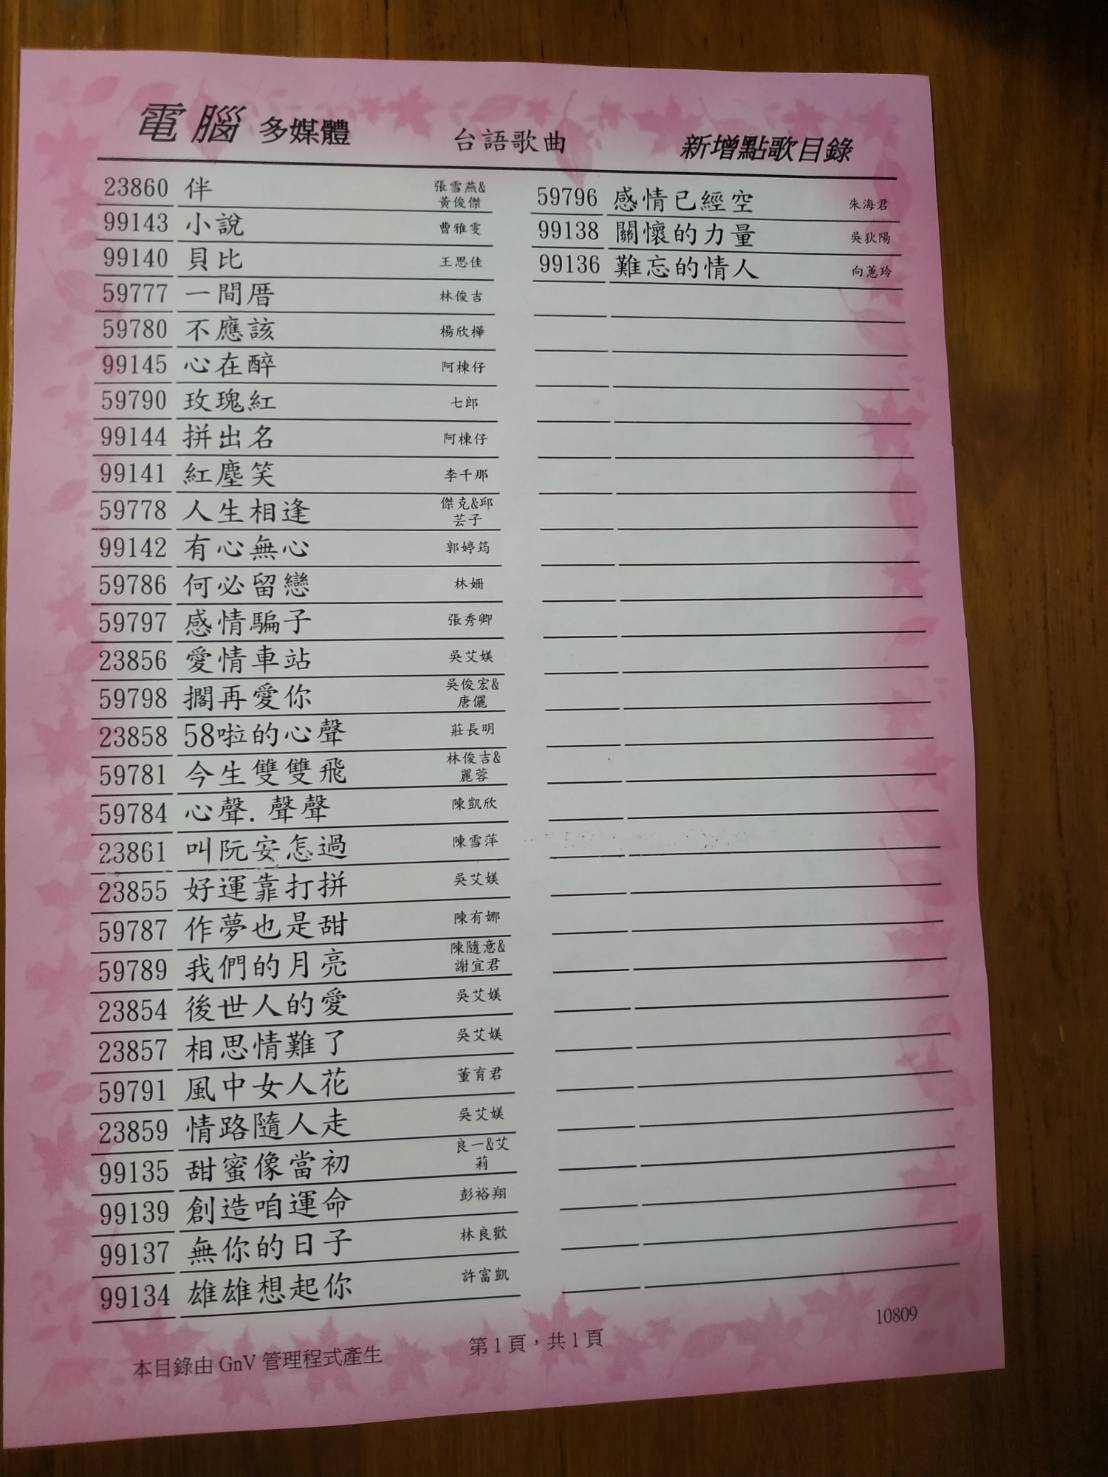 電腦 多媒體 台語歌曲 新增點歌目錄
23860 伴 張雪燕&黃俊傑
99143 小說 曹雅雯
99140 貝比 王思佳
59777 一間厝 林俊吉
59780 不應該 楊欣樺
99145 心在醉 阿棟仔
59790 玫瑰紅 七郎
99144 拼出名 阿棟仔
99141 紅塵笑 李千那
59778 人生相逢 傑克&邱芸子
99142 有心無心 郭婷筠
59786 何必留戀 林姍
59797 感情騙子 張秀卿
23856 愛情車站 吳艾媄
59798 擱再愛你 吳俊宏&唐儷
23858 58啦的心聲 莊長明
59781 今生雙雙飛 林俊吉&麗蓉
59784 心聲.聲聲 陳凱欣
23861 叫阮安怎過 陳雪萍
23855 好運靠打拼 吳艾媄
59787 作夢也是甜 陳有娜
59789 我們的月亮 陳隨意&謝宜君
23854 後世人的愛 吳艾媄
23857 相思情難了 吳艾媄
59791 風中女人花 董育君
23859 情路隨人走 吳艾媄
99135 甜蜜像當初 良一&艾莉
99139 創造咱運命 彭裕翔
99137 無你的日子 林良歡
99134 雄雄想起你 許富凱
59796 感情已經空 朱海君
99138 關懷的力量 吳狄陽
99136 難忘的情人 向蕙玲
10809
本目錄由 GnV 管理程式產生 第1頁，共1頁